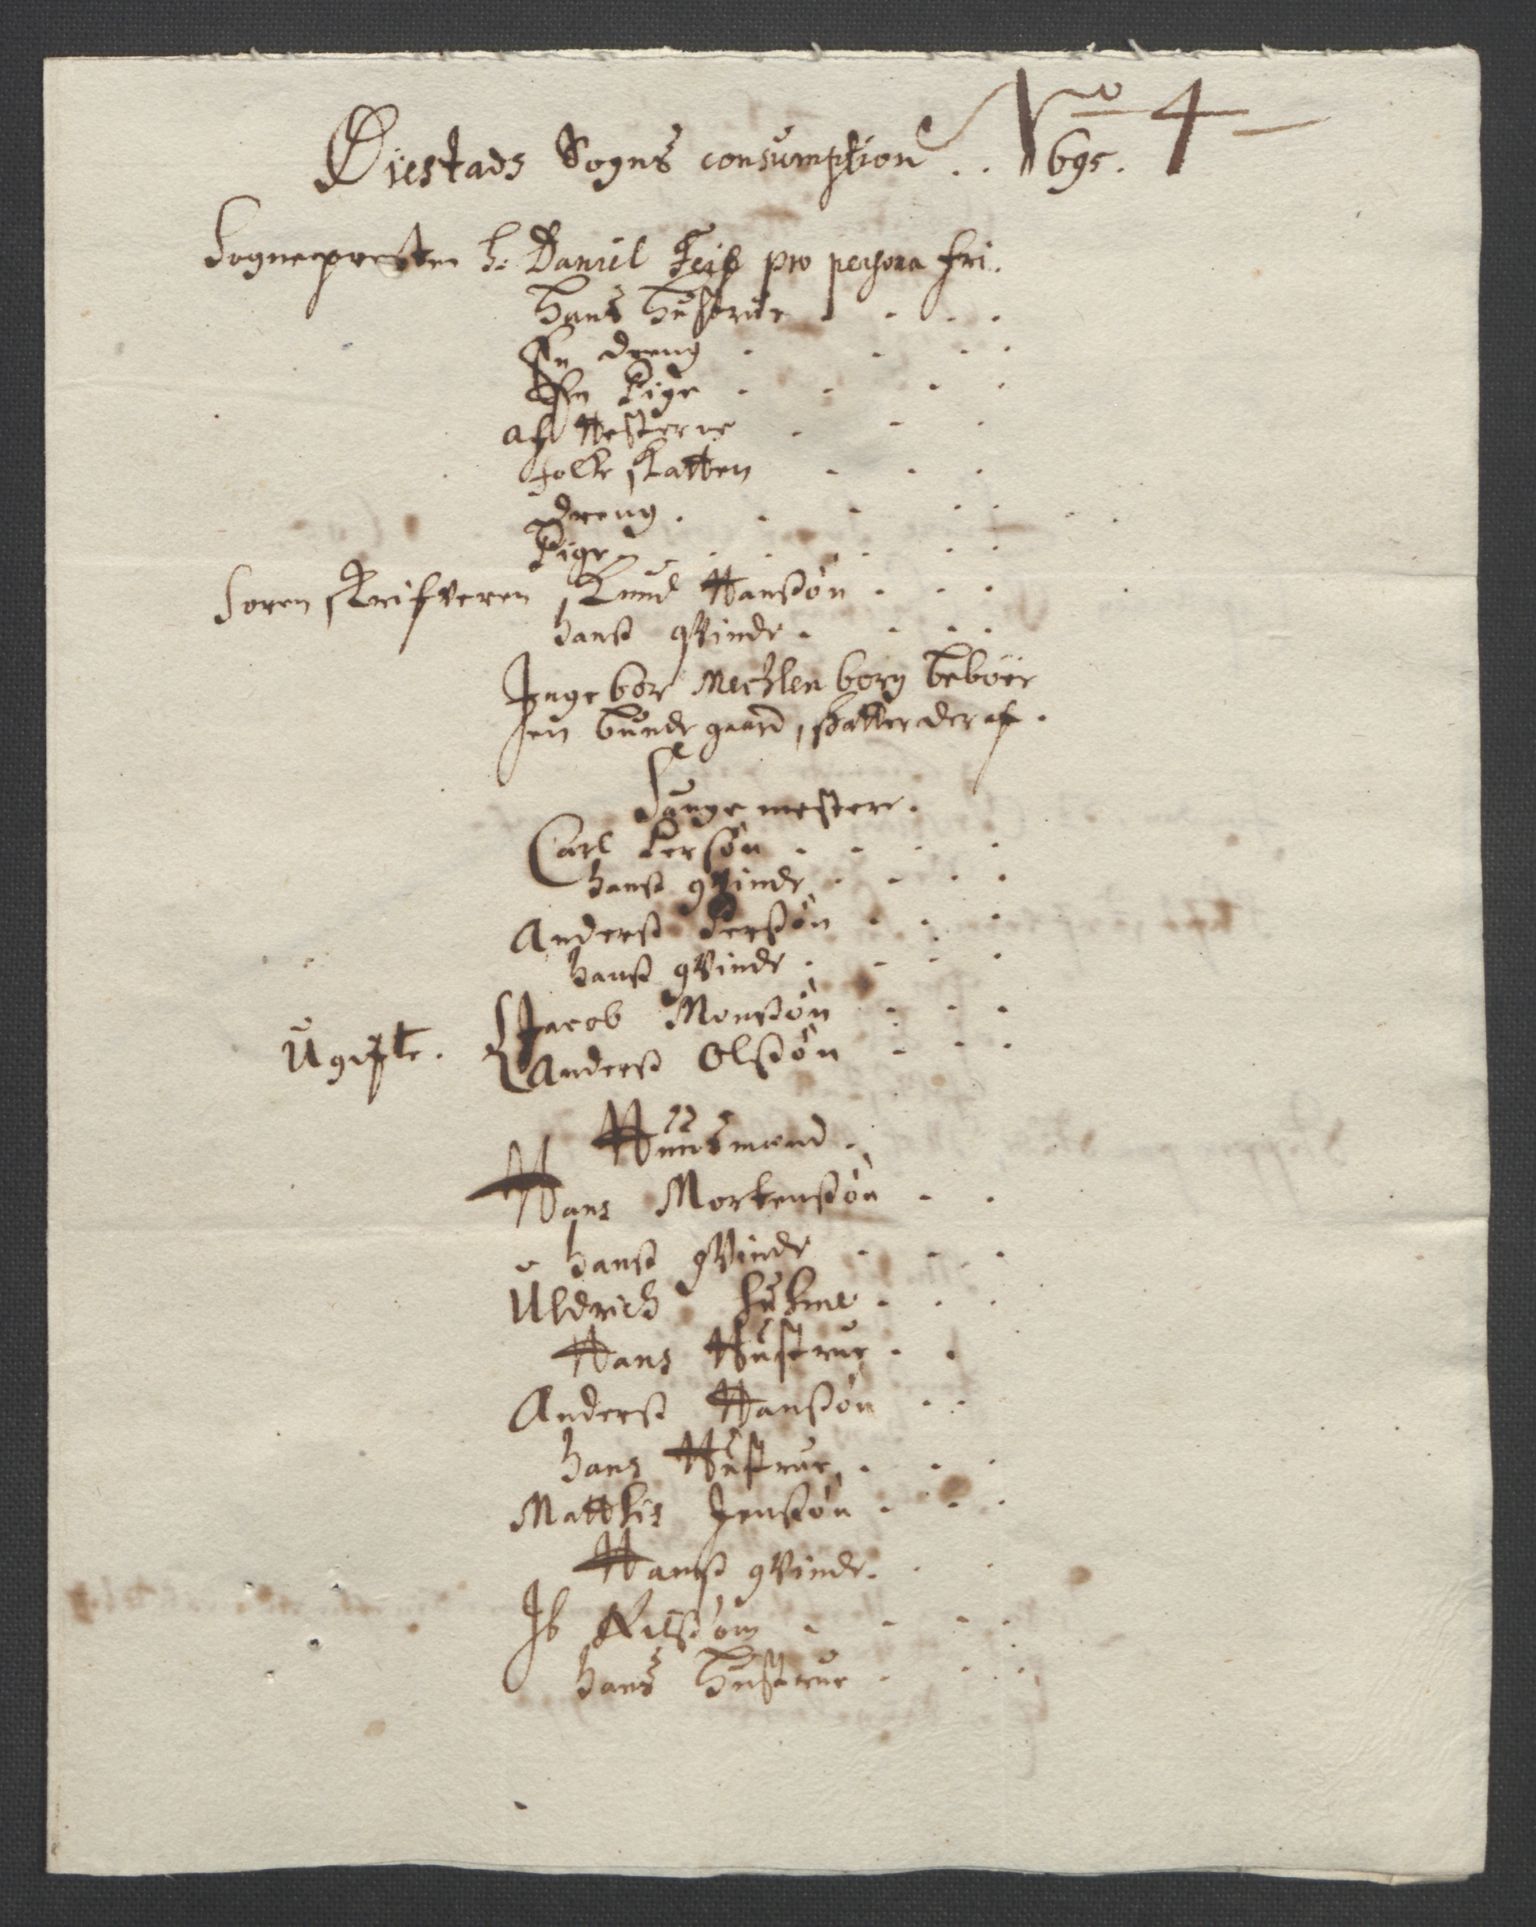 No 4
Øiestads Sogns consumption . . 1695.
Sognepresten h: Daniel Feig pro persona fri.
hans hustrue . . . .
En dreng . . . .
En Pige . . . .
af Hesterne . . .
folke skatten . . .
dreng . . . . . . .
Pige . . . . . .
Soren skrifveren Knud Hanssøn . . .
hanss qvinde . . . .
Ingebor Mechlenborg beboer
en bunde gaard, skatter der af.
Saugemestere.
Carl Persøn . . . .
hanss qvinde . . . .
Anderss Perssøn . . .
hanss qvinde . . . .
Ugifte. Jacob Monssøn . . .
Anderss Olssøn . . .
Huusmænd.
Hans Mortenssøn . .
hanss qvinde . . .
Uldrich . . .
Hans Hustrue . .
Anderss Hanssøn . .
hans Hustrue . . .
Matthis Jenssøn . . .
Hanss qvinde . .
Ib Nilssøn . . . .
hans hustrue . . .